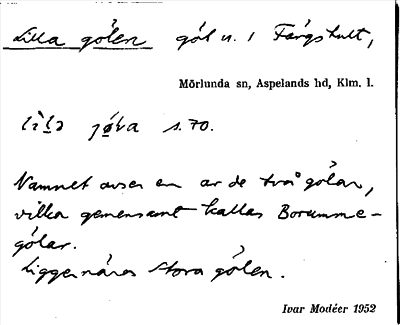 Lilla gölen göl n. i Färgshult,
Mörlunda sn, Aspelands hd, Klm. l.
s. 70.
Namnet avser en av de två gölar,
vilka gemensamt kallas Boramme-
gölar.
Ligger nära Stora gölen.
Ivar Modéer 1952